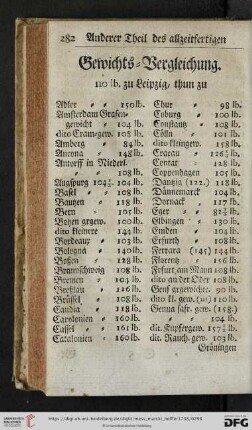 282 Anderer Theil des allzeitfertigen
Gewichts-Vergleichung.
110 lb. zu Leipzig, thun zu
Adler 150 lb.
Amsterdam Grafen-
gewicht 104 lb.
dito Cram-gew. 108 lb.
Amberg 84 lb.
Ancona 148 lb.
Antorff in Niederl.
108 lb.
Augspurg 104
Basel 108 lb.
Bautzen 118 lb.
Bern 105 lb.
Botzen gros gew. 100 lb.
dito kleinere 144 lb.
Bordeaux 103 lb.
Bologna 140 lb.
Botzen 128 lb.
Braunschweig 108 lb.
Bremen 104 lb.
Breßlau 126 lb.
Brüssel 108 lb.
Candia 118 lb.
Carolonien 160 lb.
Cassel 161 lb.
Catalonien 160 lb.
Chur 98 lb.
Coburg 100 lb.
Constantz 108 lb.
Cölln 101 lb.
dito kleingew. 158 lb.
Cracau
Contar 128 lb.
Copenhagen 105 lb.
Dantzig (122.) 118 lb.
Dännemarck 104 lb.
Dornack 127 lb.
Eger
Elbingen 150 lb.
Emden 104 lb.
Erfurth 108 lb.
Ferrara (145) 144 lb.
Florentz 116 lb.
Frfurt am Mayn 108 lb.
dito an der Oder 108 lb.
Genf grosgewichte. 90 lb.
dito kl. gew. (111) 110 lb.
Genua safr. gew. (158.)
104 lb.
dit. Kupfergew. 157
dit. Rauch. gew. 103 lb.
Gröningen